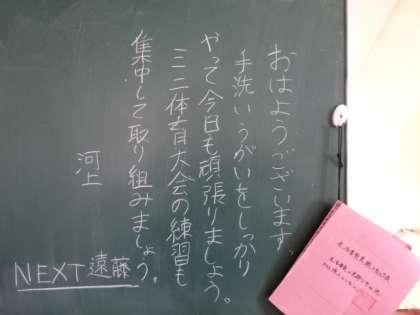 おはようございます。
手洗いうがいをしっかり
やって今日も頑張りましょう。
ミニ体育大会の練習も
集中して取り組みましょう。
河上
NEXT 遠藤